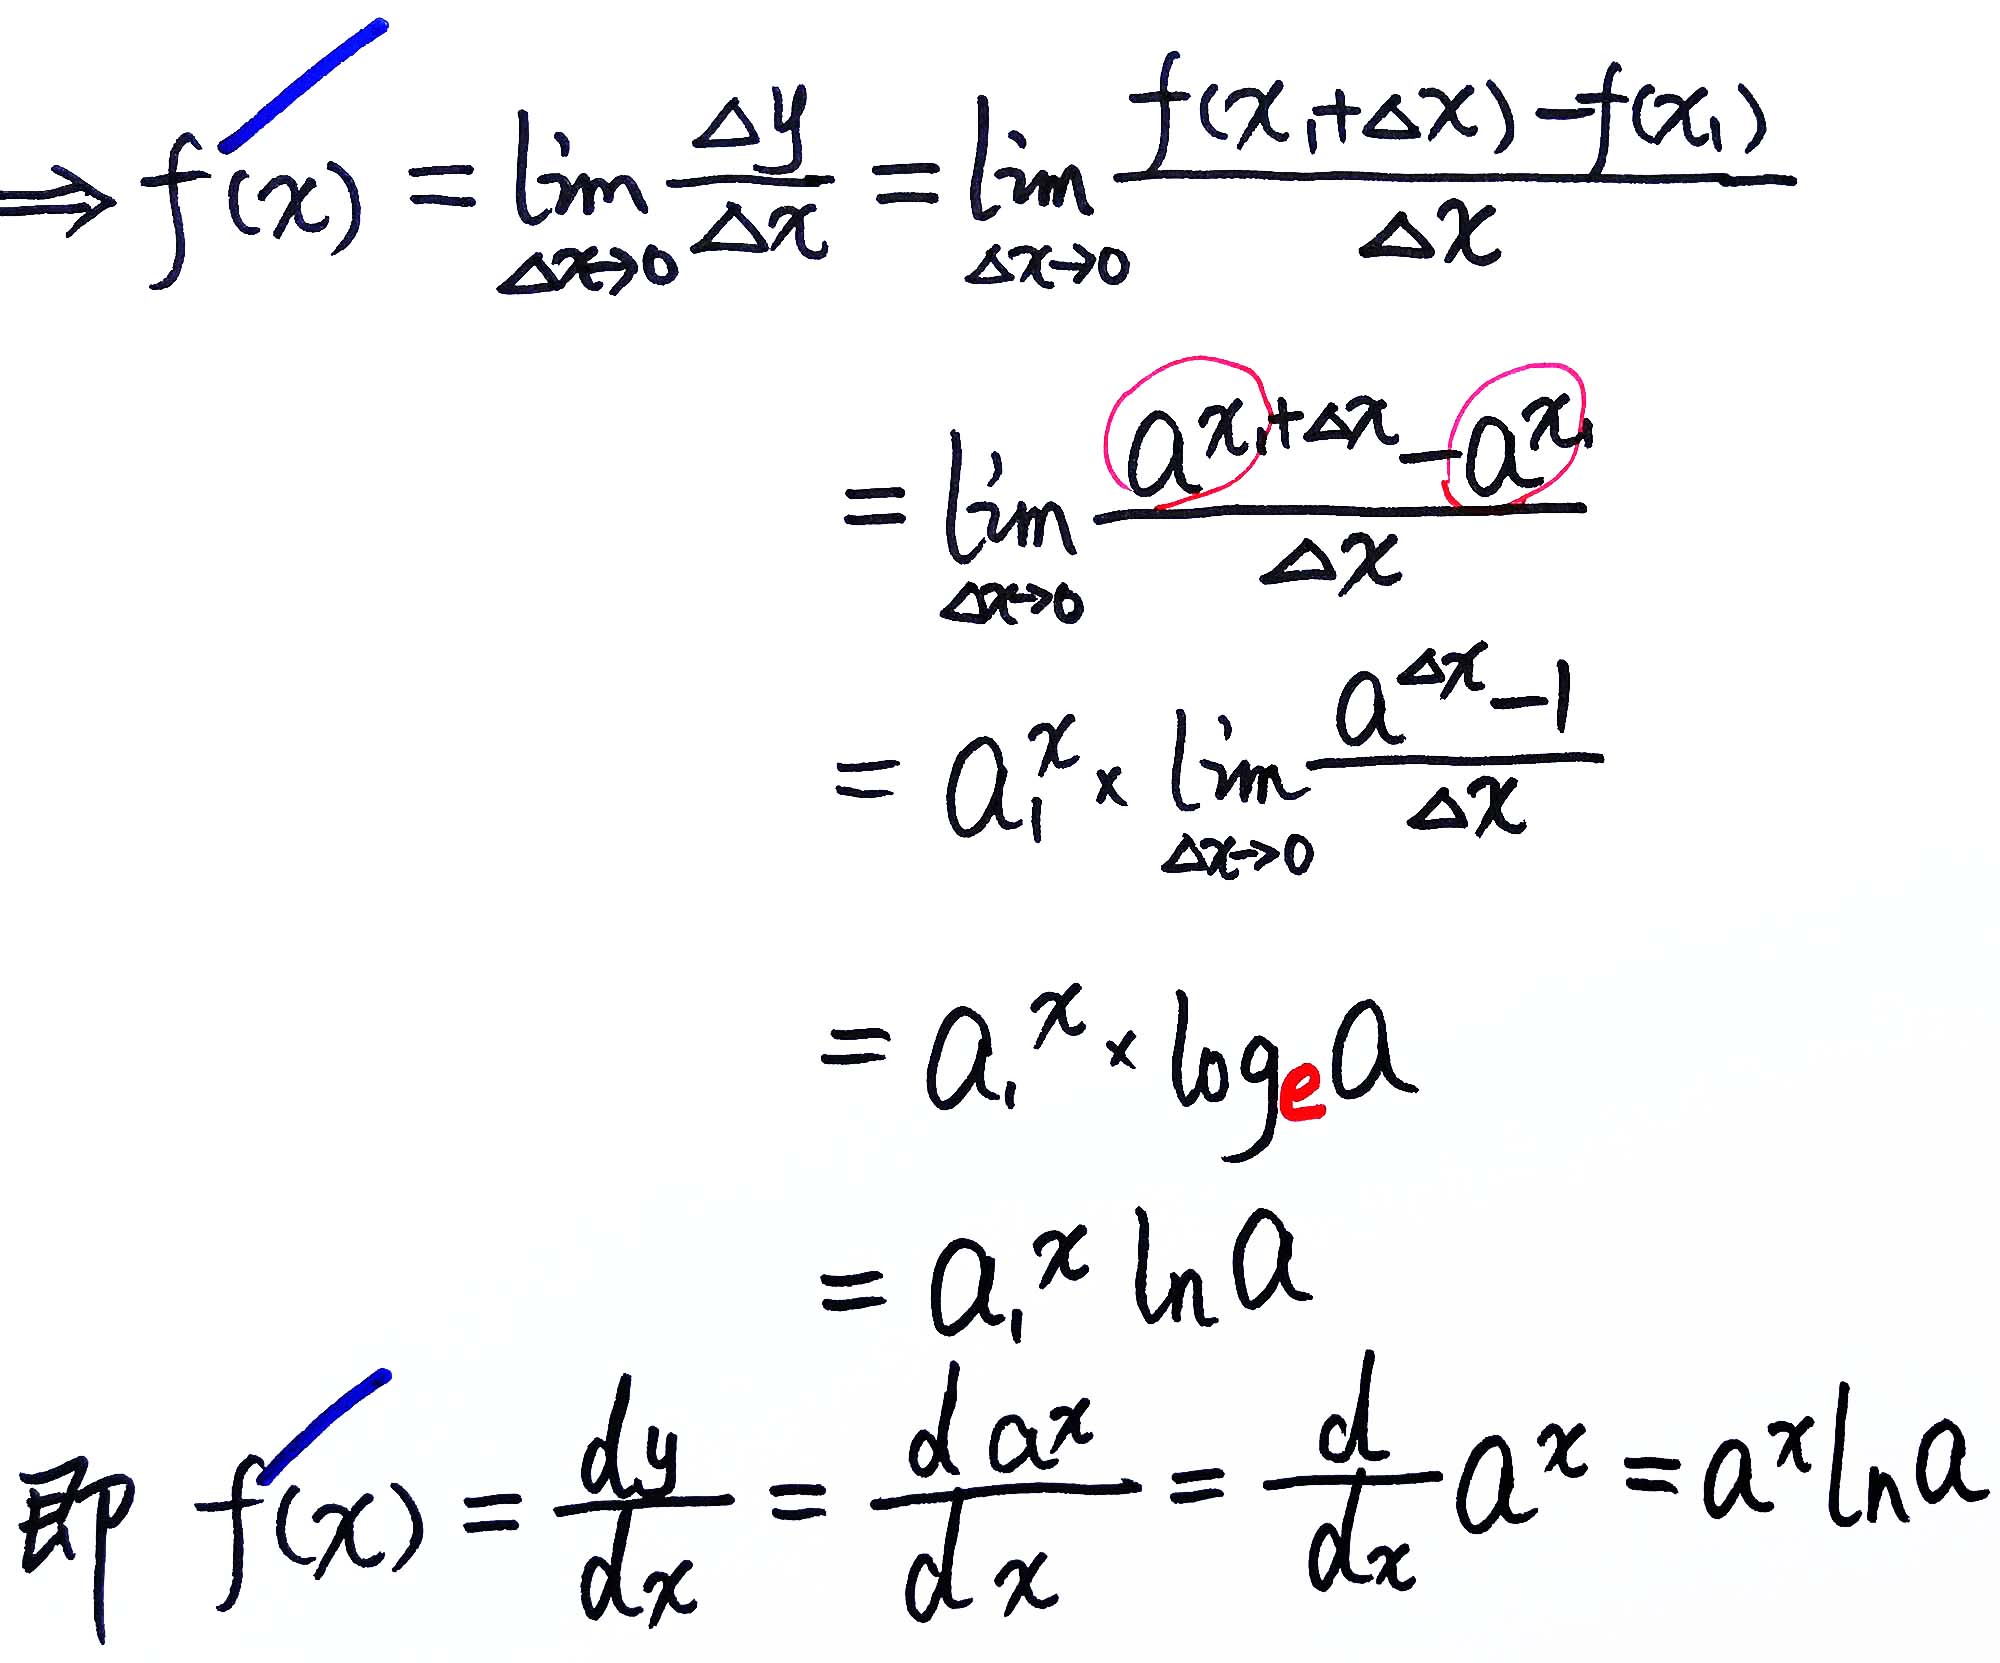 ⇒ f′(x) = lim_{Δx→0} Δy/Δx = lim_{Δx→0} (f(x₁+Δx)−f(x₁))/Δx
= lim_{Δx→0} (a^{x₁+Δx}−a^{x₁})/Δx
= a₁^x × lim_{Δx→0} (a^{Δx}−1)/Δx
= a₁^x × log_e a
= a₁^x ln a
即 f′(x) = dy/dx = d a^x/dx = d/dx a^x = a^x ln a